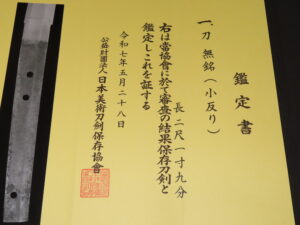 鑑定書
一、刀 無銘（小反り）
長 二尺一寸九分
右は當協會に於て審査の結果保存刀剣と
鑑定しこれを証する
令和七年五月二十八日
公益財團法人日本美術刀剣保存協會